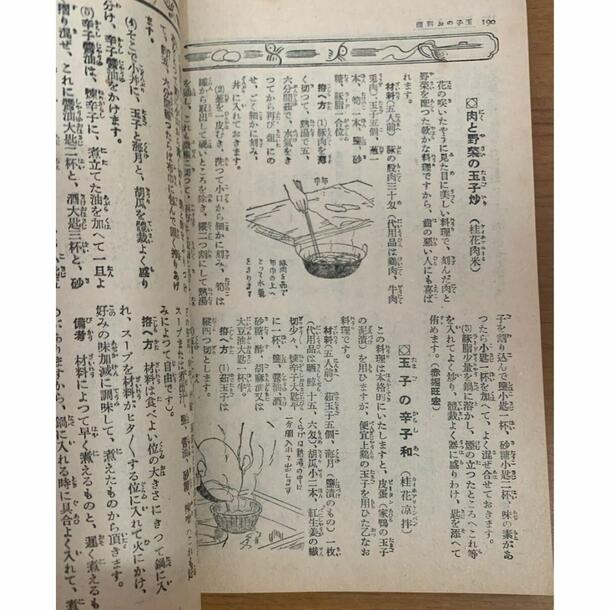 190
玉子のお料理
◇肉と野菜の玉子炒(桂花肉米)
花の咲いたやうに見た目に美しい料理で、刻んだ肉と
野菜を使つた軟かな料理ですから、齒の惡い人にも喜ば
れます。
材料(五人前) 豚の腿肉三十匁(代用品は鷄肉、牛肉
兎肉)玉子五個、葱一
本、筍一本、鹽、砂
糖、豚脂一合位。
拵へ方 (1)豚肉を薄
く切つて、熱湯で五
六分間茹で、水氣をき
つてから再び組にの
せ、ごく細かに刻み、
丼に入れておきます。
(2)葱を一皮むき、洗つて小口から細かに刻み、筍は
罐から取出して硬いところを除き、縱二つ割にして熱湯
豚肉を茹で
布巾の上へ
とつて水氣
をきります
子を割り込んで鹽小匙一杯、砂糖小匙一杯、味の素があ
つたら小匙一杯を加へて、よく混ぜ合せておきます。
(5)豚脂少量を鍋に溶かし、煙の立つたところへこれ等
を入れてよく炒り、體裁よく器に盛りわけ、匙を添へて
侑めます。(赤堀旺宏)
◇玉子の辛子和(桂花凉拌)
この料理は本格的にいたしますと、皮蛋(家鴨の玉子
の泥漬)を用ひますが、便宜上鷄の玉子を用ひた乙なお
料理です。
材料(五人前) 茹玉子五個、海月(鹽漬のもの)一枚
(代用品は晒鯨十五、六匁)胡瓜小二本、紅生姜の纎
切少々、煉辛子大匙半
に一杯、鹽、醬油、酒、
砂糖、酢、胡麻油又は
大豆油大匙一杯半。
拵へ方 (1)茹玉子は
縱四つ切とします。
一分間入れて出します
ます。
(4)そこで小丼に、玉子と海月と、胡瓜を體裁よく盛り
分け、辛子醬油をかけます。
(5)辛子醬油は、煉辛子に、煮立てた油を加へて一旦よ
く摺り混ぜ、これに醬油大匙二杯と、酒大匙三杯と、砂
みによつて自由です)。
拵へ方 材料は食べよい位の大きさにきつて鍋に入
れ、スープを材料がヒタ〱する位に入れて火にかけ、
好みの味加減に調味して、煮えたものから頂きます。
備考 材料によつて早く煮えるものと、遲く煮えるも
のがありますから、鍋に入れる時に具合よく入れて、